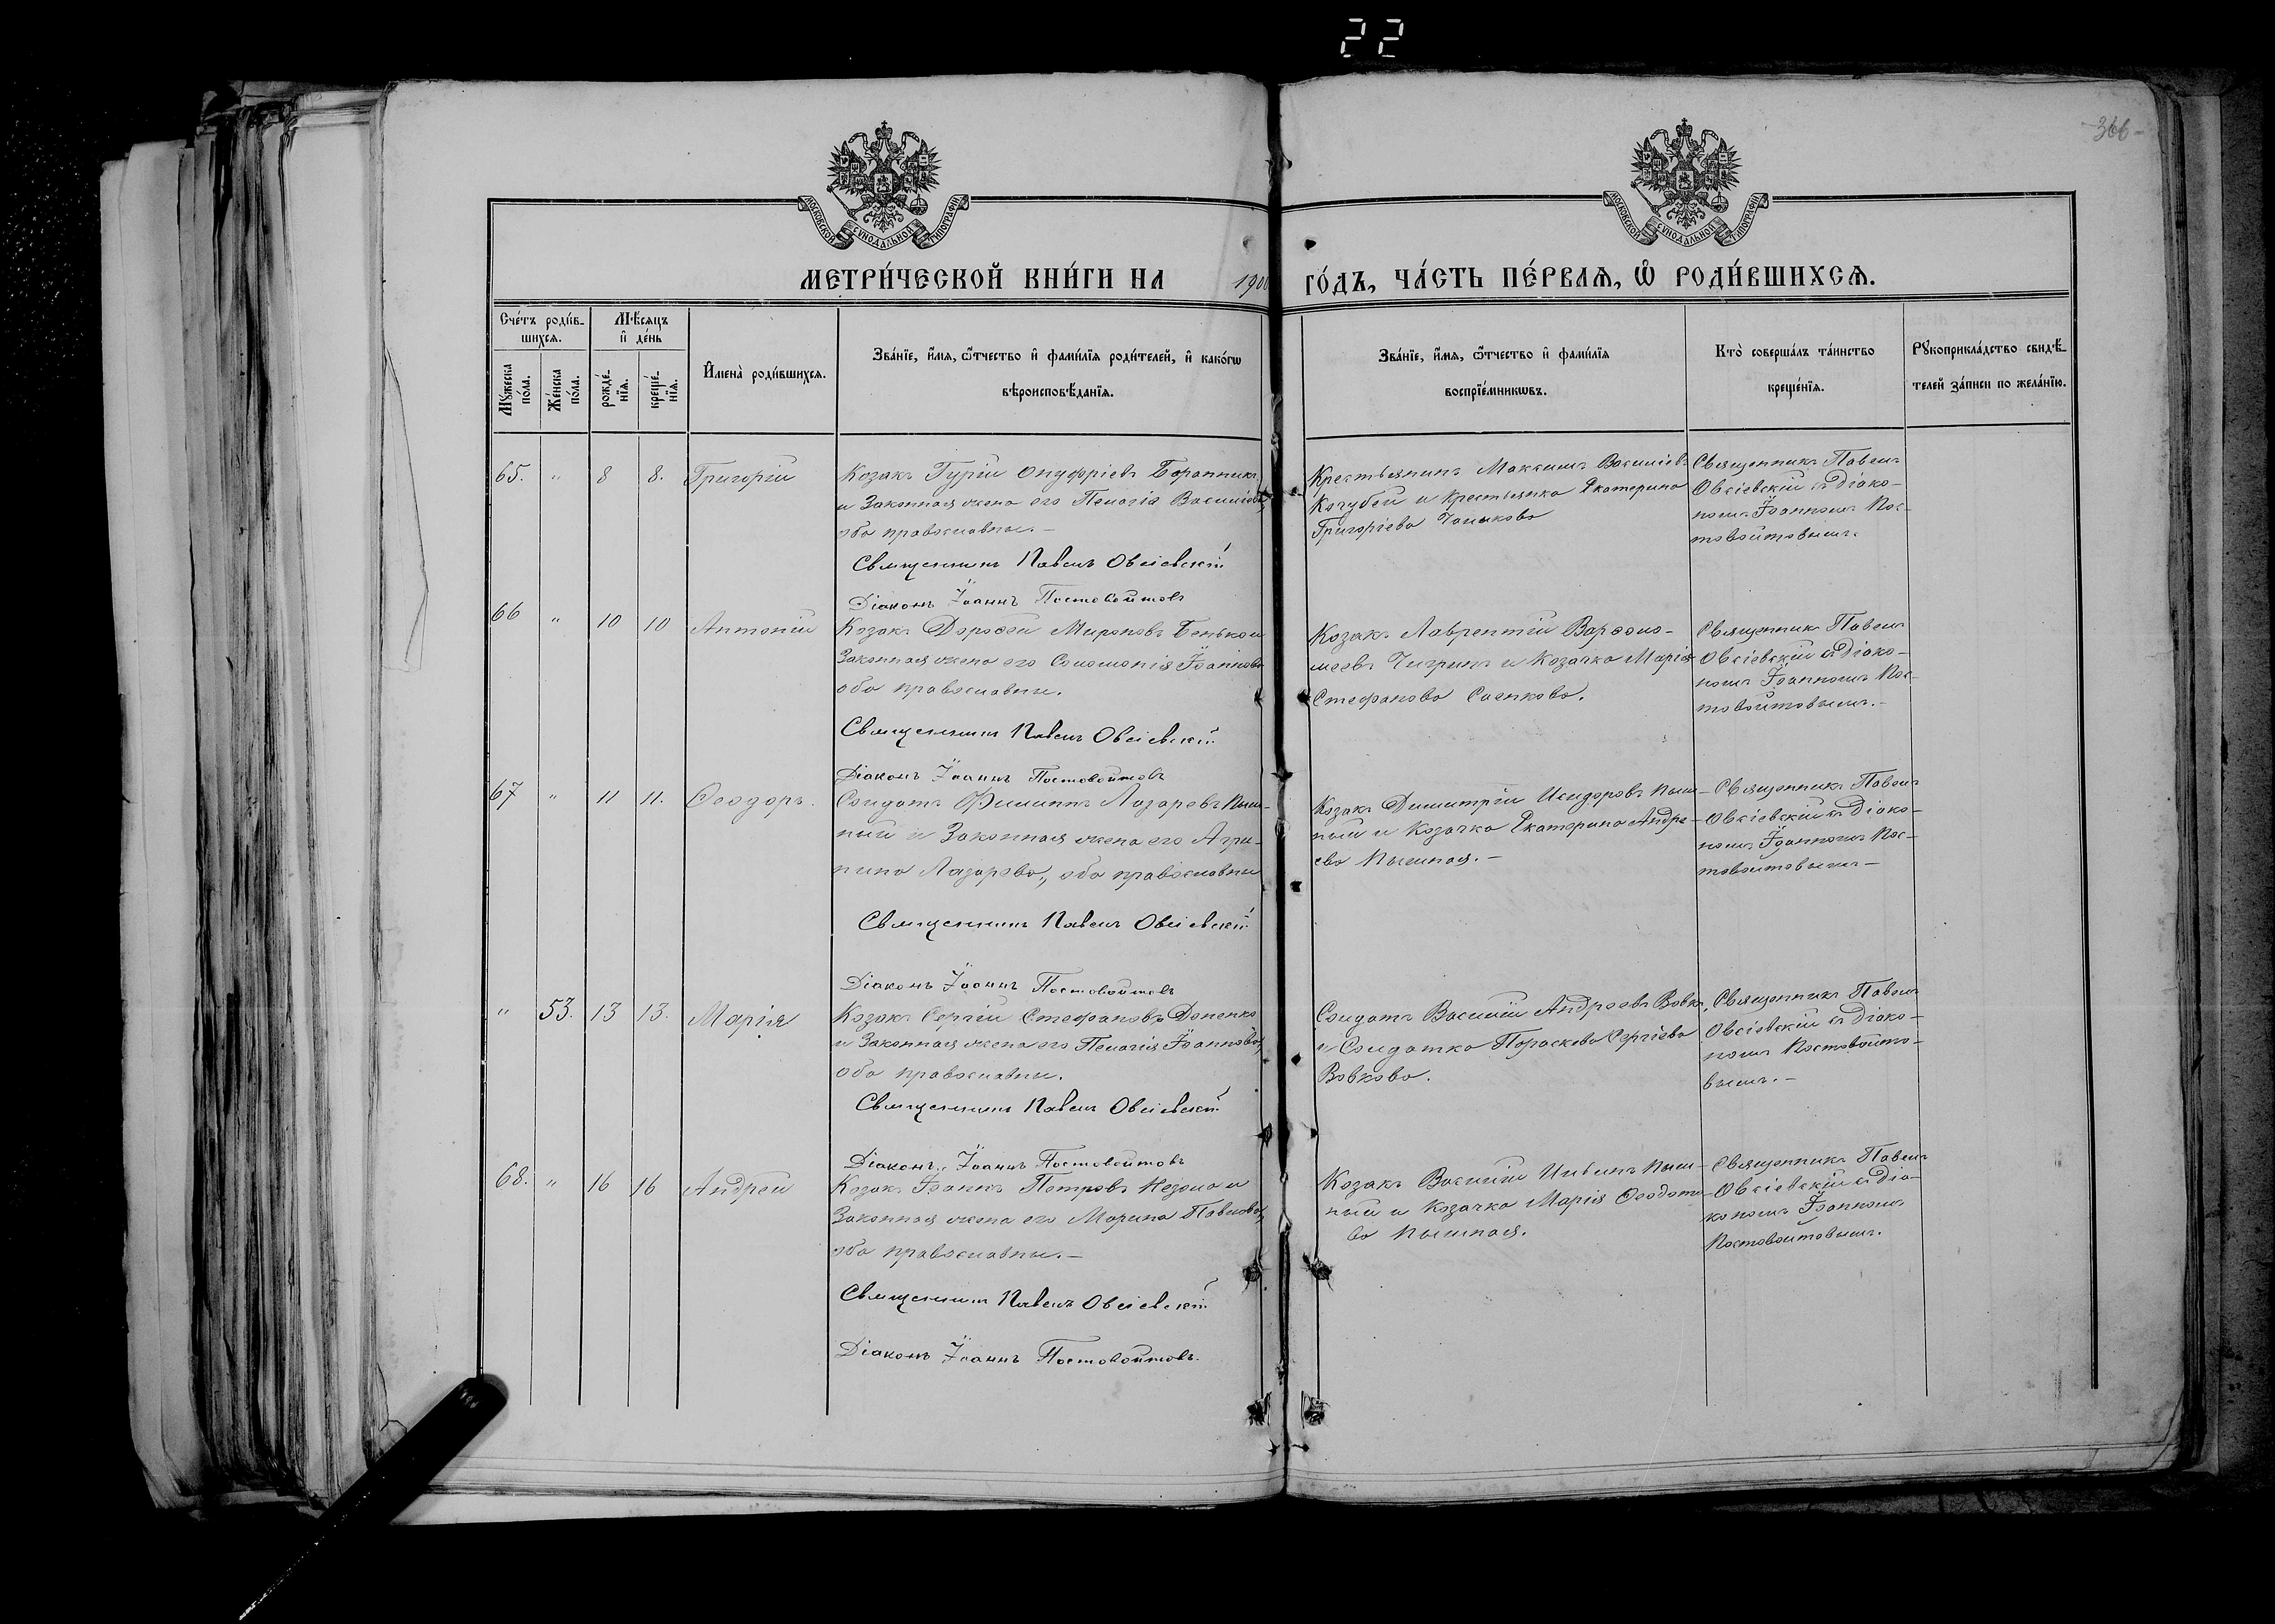 22
366
МОСКОВСКОЙ СѴНОДАЛЬНОЙ ТИПОГРАФІИ
МОСКОВСКОЙ СѴНОДАЛЬНОЙ ТИПОГРАФІИ
МЕТРИ́ЧЕСКОЙ КНИ́ГИ НА 1900 ГО́ДЪ, ЧА́СТЬ ПЕ́РВАѦ, Ѽ РОДИ́ВШИХСѦ.
Сче́тъ роди́в-
шихсѧ.
Мꙋжеска по́ла.
Же́нска по́ла.
Мѣ́сѧцъ
и҆ де́нь
рожде́-
нїѧ.
креще́-
нїѧ.
И҆мена̀ роди́вшихсѧ.
Зва́нїе, и҆́мѧ, ѻ҆́тчество и҆ фами́лїѧ роди́телей, и҆ како́гѡ
вѣроисповѣ́данїѧ.
Зва́нїе, и҆́мѧ, ѻ҆́тчество и҆ фами́лїѧ
воспрїе́мникѡвъ.
Кто̀ соверша́лъ та́инство
креще́нїѧ.
Рꙋкоприкла́дство свидѣ́-
телей за́писи по жела́нїю.
65. " 8 8. Григорій
Козакъ Гурій Онуфріевъ Баранникъ
и Законная жена его Пелагія Васильева,
оба православны.-
Священникъ Павелъ Овсіевскій
Діаконъ Іоаннъ Постовойтовъ
Крестьянинъ Максимъ Васильевъ
Кочубей и Крестьянка Екатерина
Григоріева
Священникъ Павелъ
Овсіевскій съ Діако-
номъ Іоанномъ Пос-
товойтовымъ.
66 " 10 10 Антоній
Козакъ Дороѳей Мироновъ Бенько и
Законная жена его Соломонія Іоаннова
оба православны.
Священникъ Павелъ Овсіевскій
Діаконъ Іоаннъ Постовойтовъ
Козакъ Лаврентій Варѳоло-
меевъ Чигринъ и Козачка Марія
Стефанова Саенкова.
Священникъ Павелъ
Овсіевскій съ Діако-
номъ Іоанномъ Пос-
товойтовымъ.-
67 " 11 11. Ѳеодоръ.
Солдатъ Филиппъ Лазаревъ Пыш-
ный и Законная жена его Агри-
пина Лазарева, оба православны
Священникъ Павелъ Овсіевскій
Діаконъ Іоаннъ Постовойтовъ
Козакъ Димитрій Исидоровъ Пыш-
ный и Козачка Екатерина Андре-
ева Пышная.-
Священникъ Павелъ
Овсіевскій съ Діако-
номъ Іоанномъ Пос-
товойтовымъ-
" 53. 13 13. Марія
Козакъ Сергій Стефановъ Доненко
и Законная жена его Пелагія Іоаннова,
оба православны.
Священникъ Павелъ Овсіевскій
Діаконъ Іоаннъ Постовойтовъ
Солдатъ Василій Андреевъ Вовкъ,
и Солдатка Параскева Сергіева
Вовкова.
Священникъ Павелъ
Овсіевскій съ Діако-
номъ Постовойто-
вымъ.-
68. " 16 16 Андрей
Козакъ Іоаннъ Петровъ Незола и
Законная жена его Марина Павлова,
оба православны.-
Священникъ Павелъ Овсіевскій
Діаконъ Іоаннъ Постовойтовъ.
Козакъ Василій Пыш-
ный и Козачка Марія Ѳеодото-
ва Пышная.
Священникъ Павелъ
Овсіевскій съ Діа-
кономъ Іоанномъ
Постовойтовымъ.